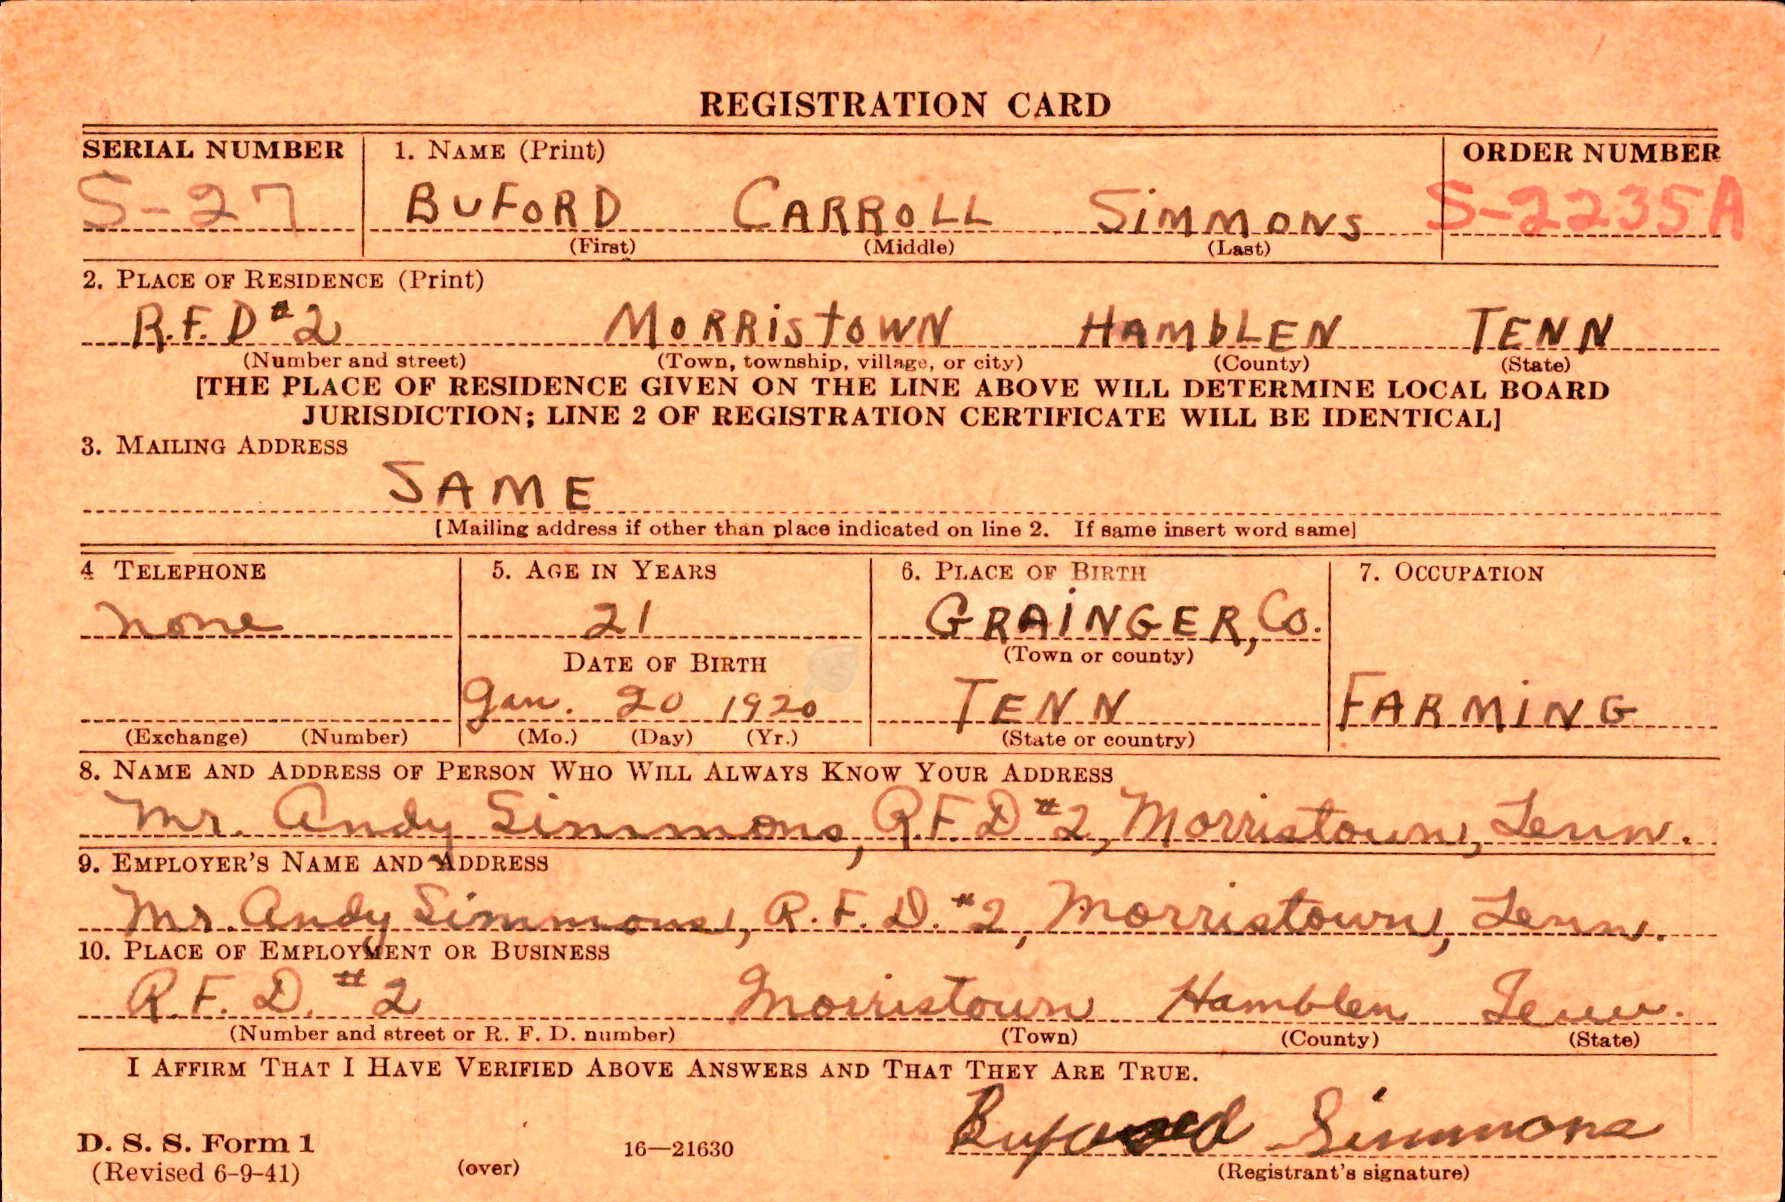 REGISTRATION CARD
SERIAL NUMBER 1. NAME (Print) ORDER NUMBER
S-27 BUFORD CARROLL SIMMONS S-2235A
(First) (Middle) (Last)
2. PLACE OF RESIDENCE (Print)
R.F.D #2 MORRISTOWN HAMBLEN TENN
(Number and street) (Town, township, village, or city) (County) (State)
[THE PLACE OF RESIDENCE GIVEN ON THE LINE ABOVE WILL DETERMINE LOCAL BOARD
JURISDICTION; LINE 2 OF REGISTRATION CERTIFICATE WILL BE IDENTICAL]
3. MAILING ADDRESS
SAME
[Mailing address if other than place indicated on line 2. If same insert word same]
4 TELEPHONE 5. AGE IN YEARS 6. PLACE OF BIRTH 7. OCCUPATION
none 21 GRAINGER, Co.
DATE OF BIRTH (Town or county)
Jan. 20 1920 TENN FARMING
(Exchange) (Number) (Mo.) (Day) (Yr.) (State or country)
8. NAME AND ADDRESS OF PERSON WHO WILL ALWAYS KNOW YOUR ADDRESS
Mr. Andy Simmons, R.F.D #2, Morristown, Tenn.
9. EMPLOYER'S NAME AND ADDRESS
Mr. Andy Simmons, R.F.D. #2, Morristown, Tenn.
10. PLACE OF EMPLOYMENT OR BUSINESS
R.F.D. #2 Morristown Hamblen Tenn.
(Number and street or R. F. D. number) (Town) (County) (State)
I AFFIRM THAT I HAVE VERIFIED ABOVE ANSWERS AND THAT THEY ARE TRUE.
Buford Simmons
D. S. S. Form 1 16—21630
(Revised 6-9-41) (over) (Registrant's signature)